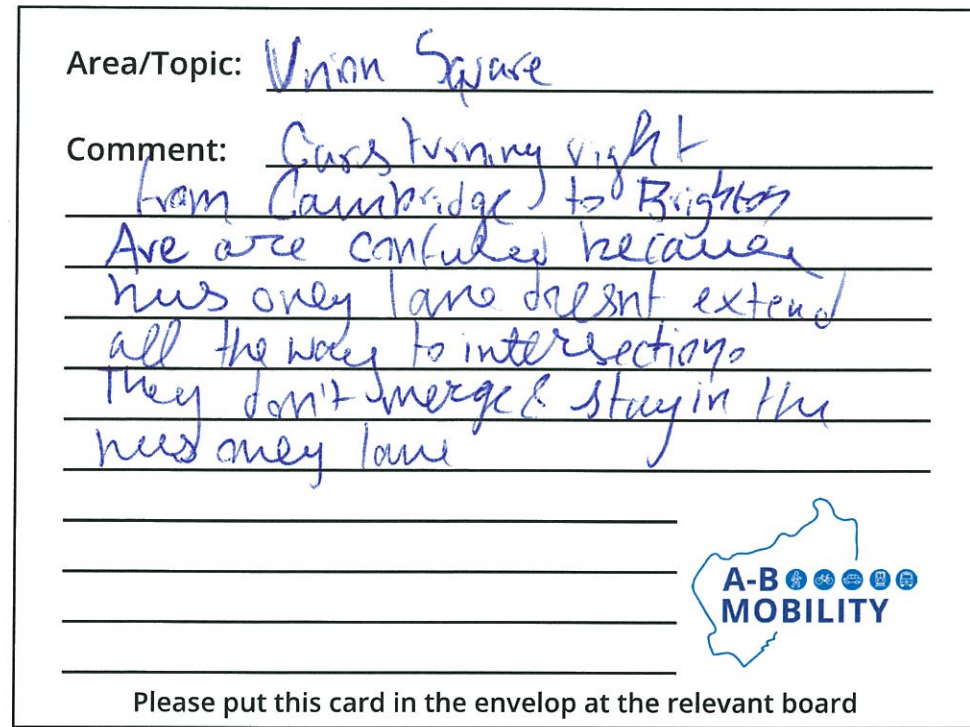 Area/Topic: Union Square
Comment: Cars turning right
from Cambridge to Brighton
Ave are confused because
bus only lane doesnt extend
all the way to intersection.
They don't merge & stay in the
bus only lane
A-B
MOBILITY
Please put this card in the envelop at the relevant board